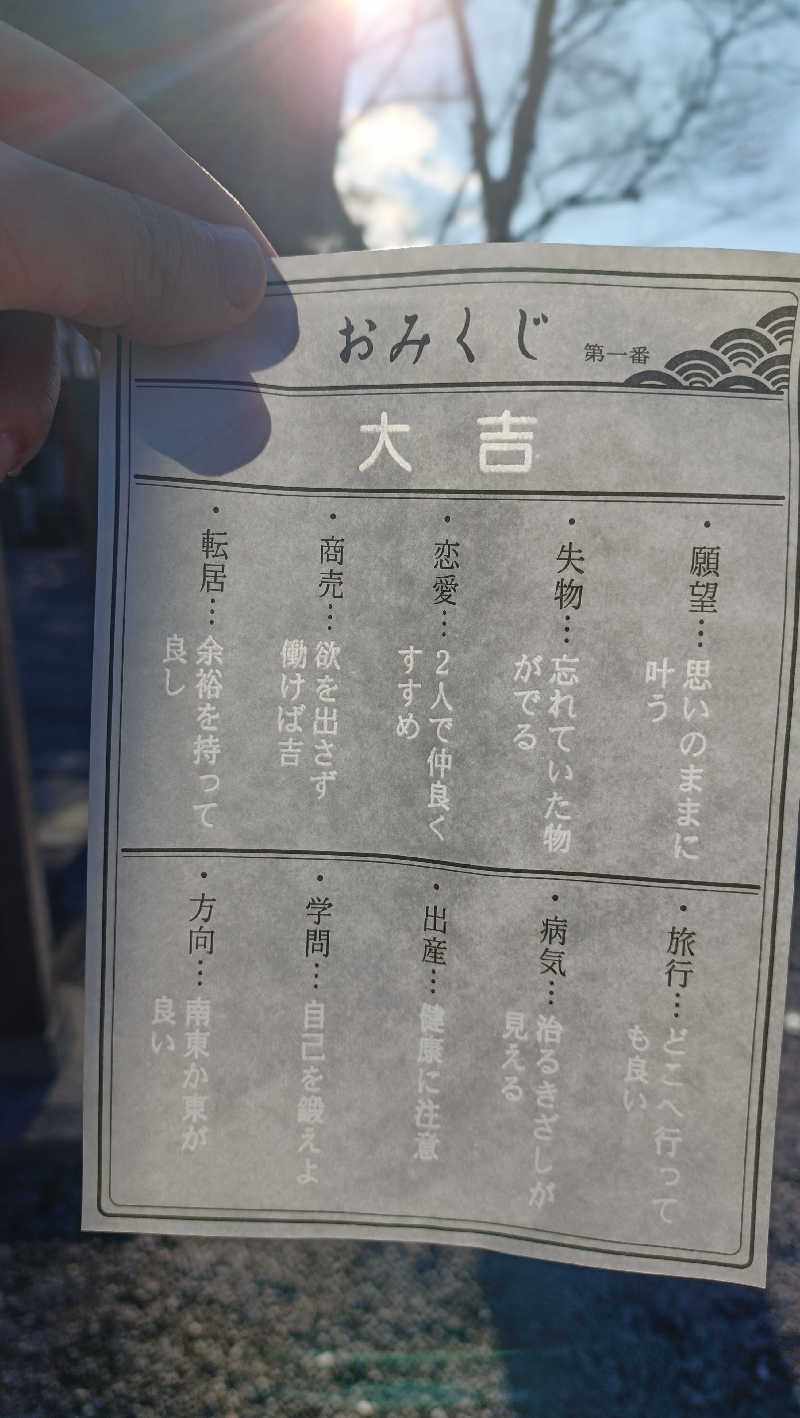 おみくじ
第一番
大吉
・願望…思いのままに
叶う
・失物…忘れていた物
がでる
・恋愛…2人で仲良く
すすめ
・商売…欲を出さず
働けば吉
・転居…余裕を持って
良し
・旅行…どこへ行って
も良い
・病気…治るきざしが
見える
・出産…健康に注意
・学問…自己を鍛えよ
・方向…南東か東が
良い